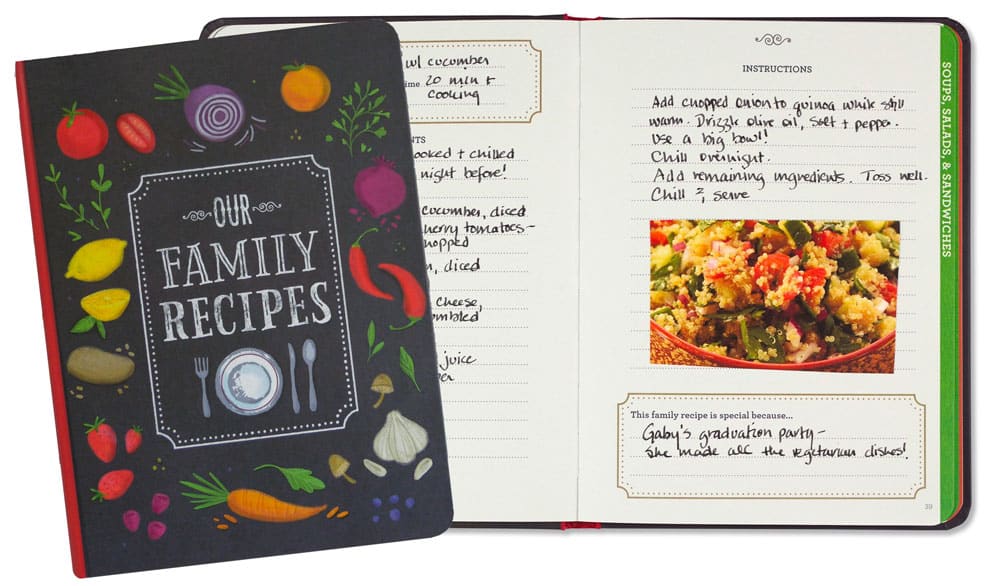 OUR
FAMILY
RECIPES
w/ cucumber
20 min +
cooking
ooked + chilled
night before!
cucumber, diced
herry tomatoes-
hopped
, diced
cheese,
mbled
juice
INSTRUCTIONS
Add chopped onion to quinoa while still
warm. Drizzle olive oil, salt + pepper.
Use a big bowl!
Chill overnight.
Add remaining ingredients. Toss well.
Chill & serve
SOUPS, SALADS, & SANDWICHES
This family recipe is special because...
Gaby's graduation party-
she made all the vegetarian dishes!
39